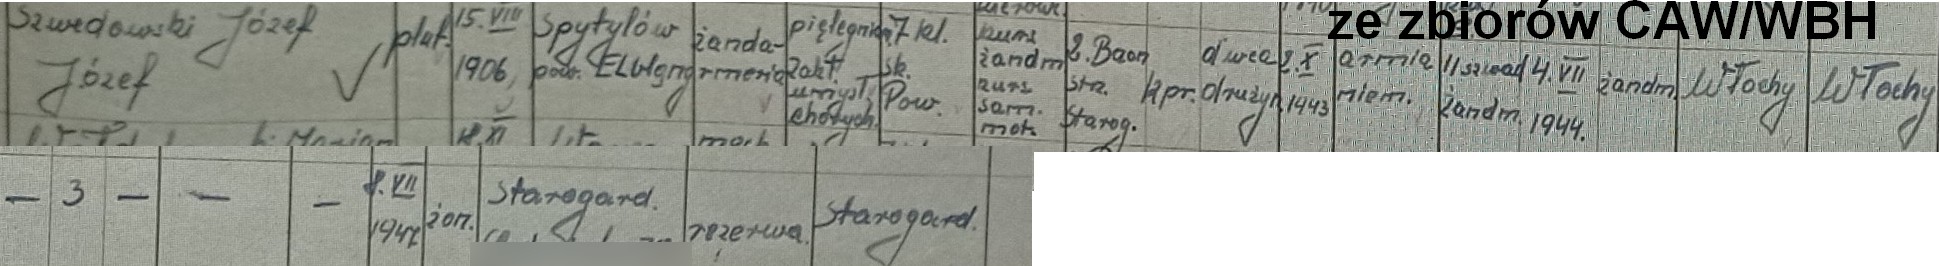 ze zbiorów CAW/WBH
Szwedowski Józef
Józef
plut.
15.VIII
1906,
Spytylów
pow.
żanda-
rmeria
7 kl.
sk.
Pow.
kurs
żandm
kurs
sam.
mot.
2. Baon
str.
Starog.
kpr.
dwca
drużyn.
2.X
1943
armia
niem.
11 szwad
żandm.
4.VII
1944.
żandm
Włochy
Włochy
— 3 — — —
8.VII
1947
żon.
Starogard.
rezerwa.
Starogard.